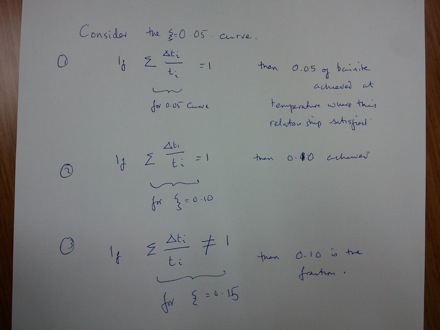 Consider the ξ=0.05 curve.
① If Σ Δti/ti = 1 then 0.05 of bainite
achieved at
for 0.05 curve temperature where this
relationship satisfied.
② If Σ Δti/ti = 1 then 0.10 achieved
for ξ=0.10
③ If Σ Δti/ti ≠ 1 then 0.10 is the
fraction.
for ξ=0.15